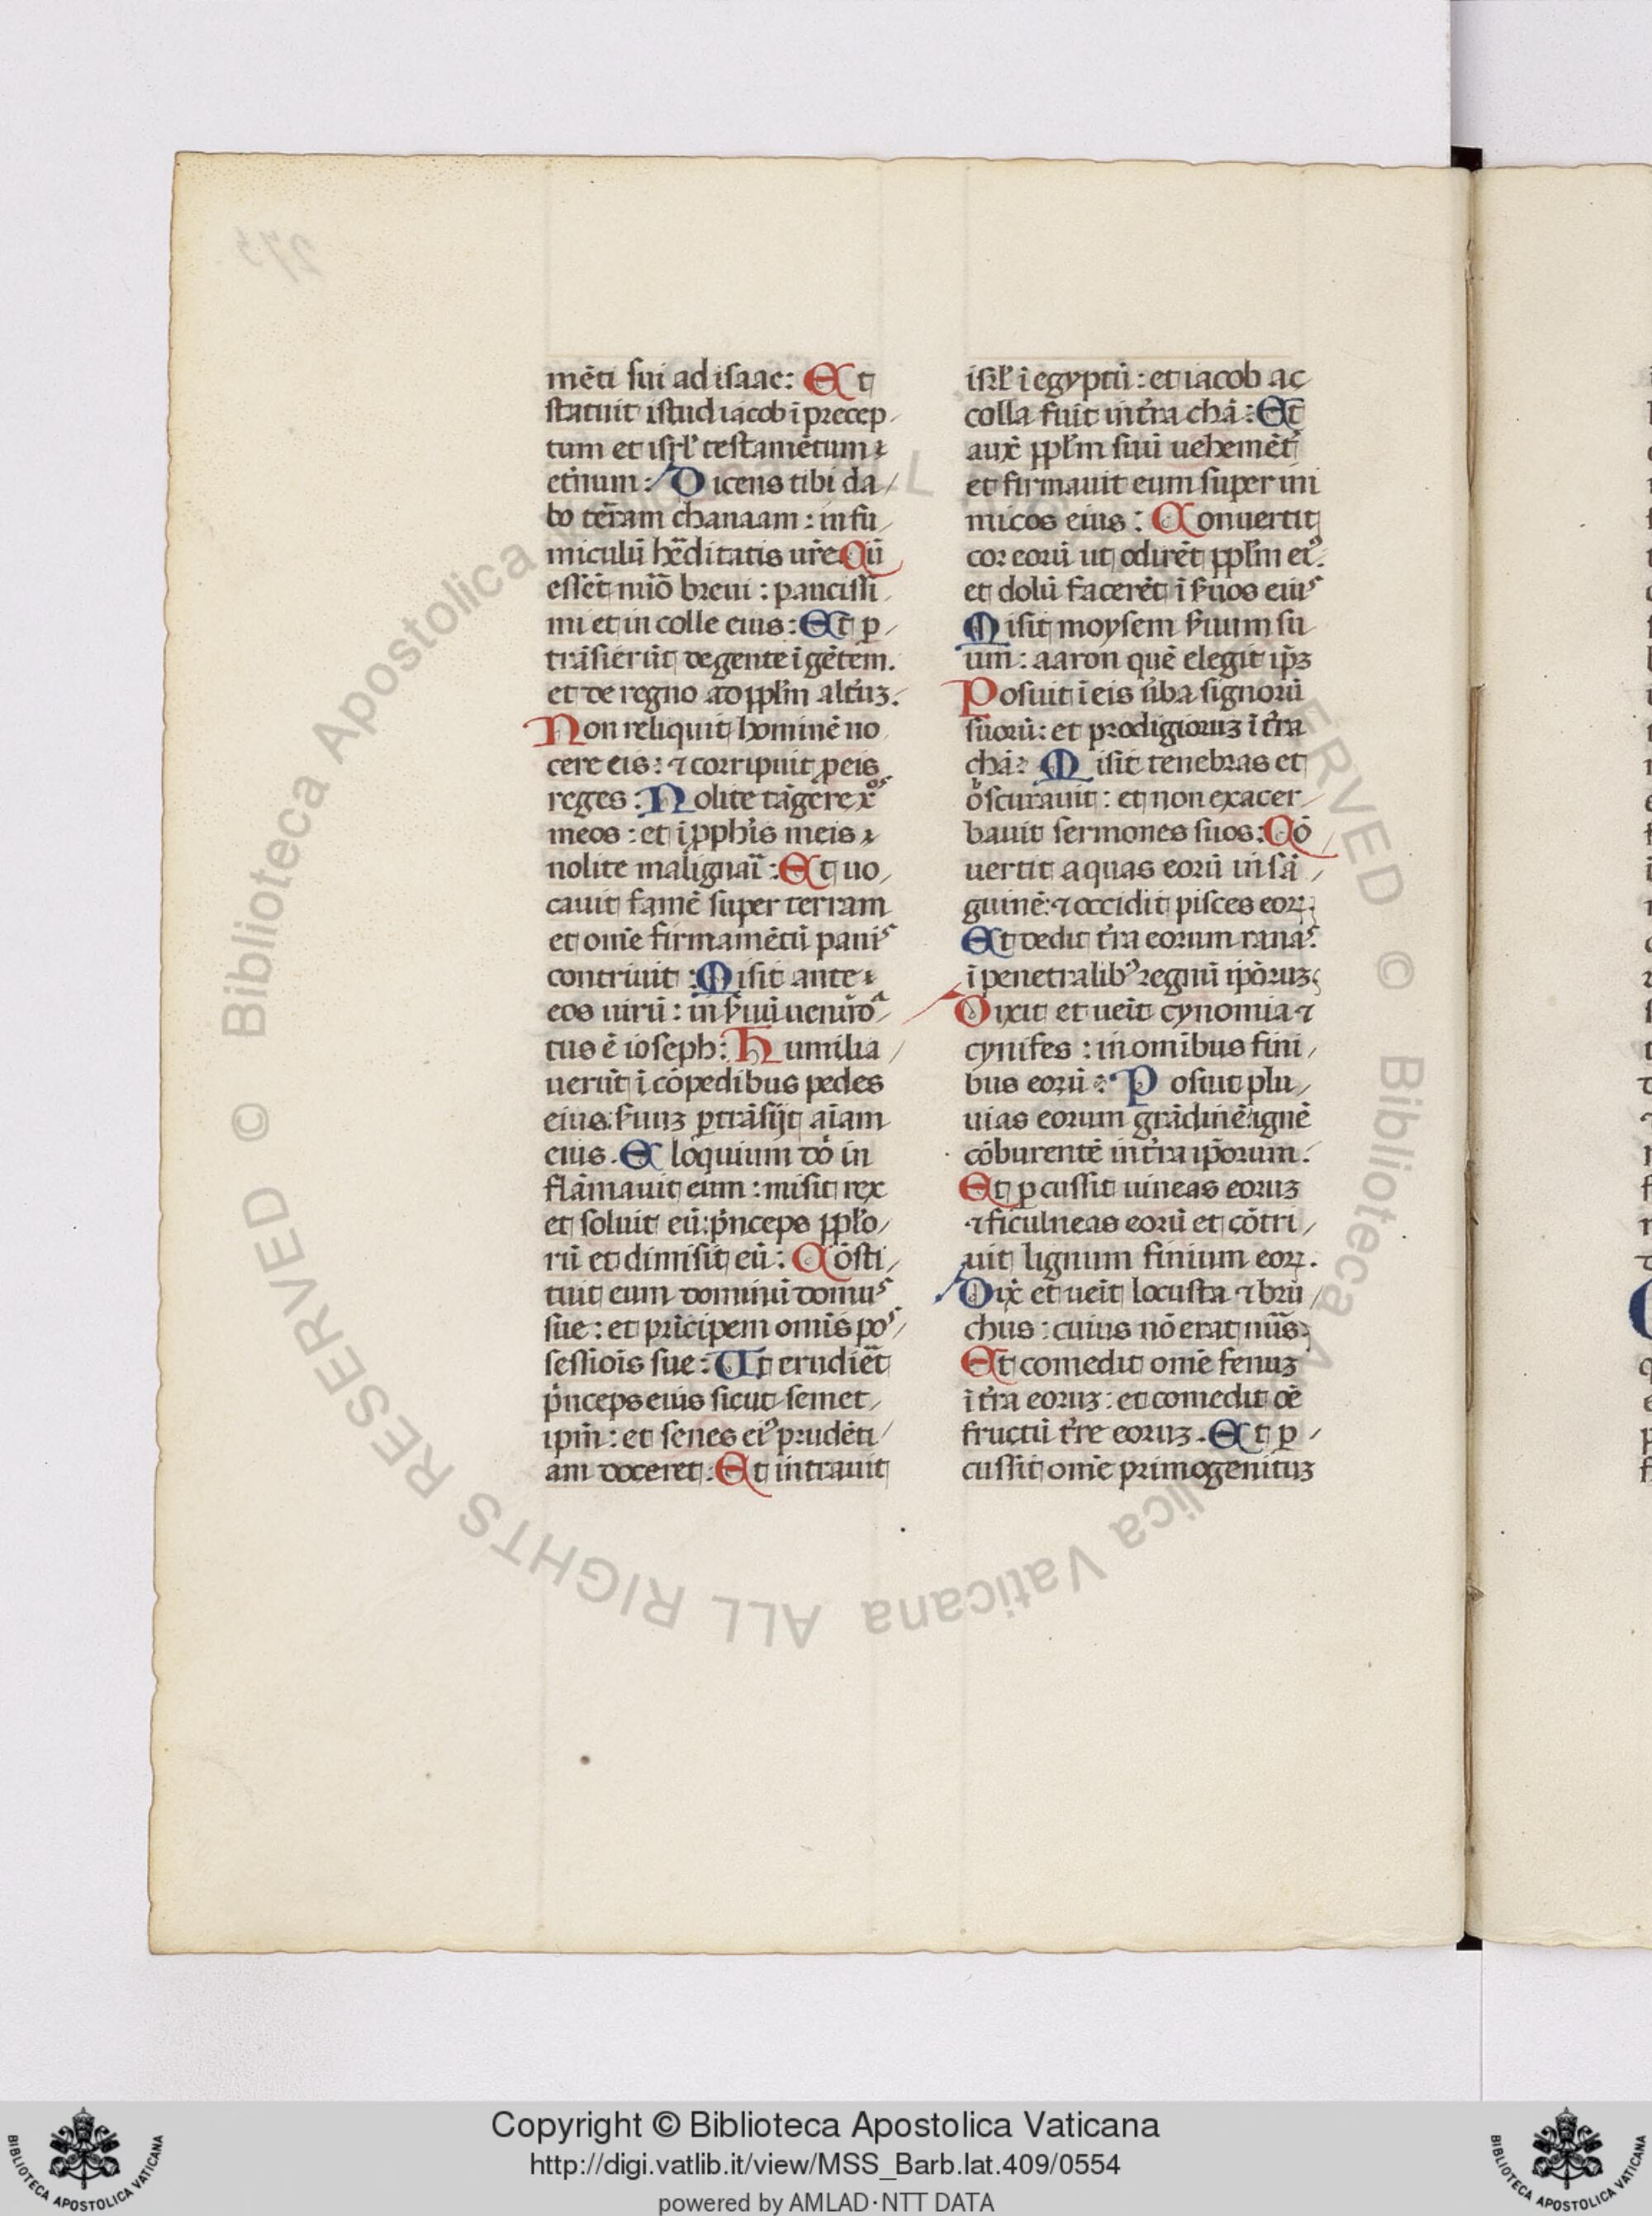 mēti sui ad isaac: Et
statuit istud iacob ī precep
tum et isrl' testamētum
et̄num: Dicens tibi da
bo terram chanaam: in fu
niculū hēditatis ur̄e Cū
essēt nūo breui: paucissi
mi et in colle eius: Et p
trāsierūt de gente ī gētem.
et de regno ad ppl'm alt'uz.
Non reliquit hominē no
cere eis: ⁊ corripuit p eis
reges: Nolite tāgere xōs
meos: et ī pphīs meis
nolite malignaī: Et uo
cauit famē super terram
et om̄e firmamētū panis
contriuit: Misit ante
eos uirū: in s'uū uenūda
tus ē ioseph: Humilia
uerūt ī cōpedibus pedes
eius: ferruz ptrāsijt aīam
eius. Eloquium dn̄i in
flāmauit eum: misit rex
et soluit eū: p'nceps pplo
rū et dimisit eū: Cōsti
tuit eum dominū domus
sue: et prīcipem om̄is pos
sessiois sue: Ut erudiēt
p'nceps eius sicut semet
ipm̄: et senes ei' prudēti
am doceret: Et intrauit
isrl' ī egyptū: et iacob ac
colla fuit in t'ra chā: Et
aux̄ ppl'm suū uehemēt'
et firmauit eum super ini
micos eius: Conuertit
cor eorū ut odirēt ppl'm ei'.
et dolū facerēt ī s'uos eius
Misit moysem s'uum su
um: aaron quē elegit ip̄z
Posuit ī eis u'ba signorū
suorū: et prodigioruz ī t'ra
chā: Misit tenebras et
obscurauit: et non exacer
bauit sermones suos: Cō
uertit aquas eorū in sā
guinē: ⁊ occidit pisces eoꝝ
Et dedit t'ra eorum ranas:
ī penetralib' regnū ip̄oruz
Dixit et ueīt cynomia ⁊
cynifes: in omībus fini
bus eorū: Posuit plu
uias eorum grādinē: ignē
cōburentē in t'ra ip̄orum:
Et pcussit uineas eoruz
⁊ ficulneas eorū et cōtri
uit lignum finium eoꝝ.
Dix̄ et ueīt locusta ⁊ bru
chus: cuius nō erat nūs
Et comedit om̄e fenuz
ī t'ra eoruz: et comedit oē
fructū t're eoruz. Et p
cussit om̄e primogenituz
© Biblioteca Apostolica Vaticana ALL RIGHTS RESERVED
Copyright © Biblioteca Apostolica Vaticana
http://digi.vatlib.it/view/MSS_Barb.lat.409/0554
powered by AMLAD·NTT DATA
BIBLIOTECA APOSTOLICA VATICANA
BIBLIOTECA APOSTOLICA VATICANA